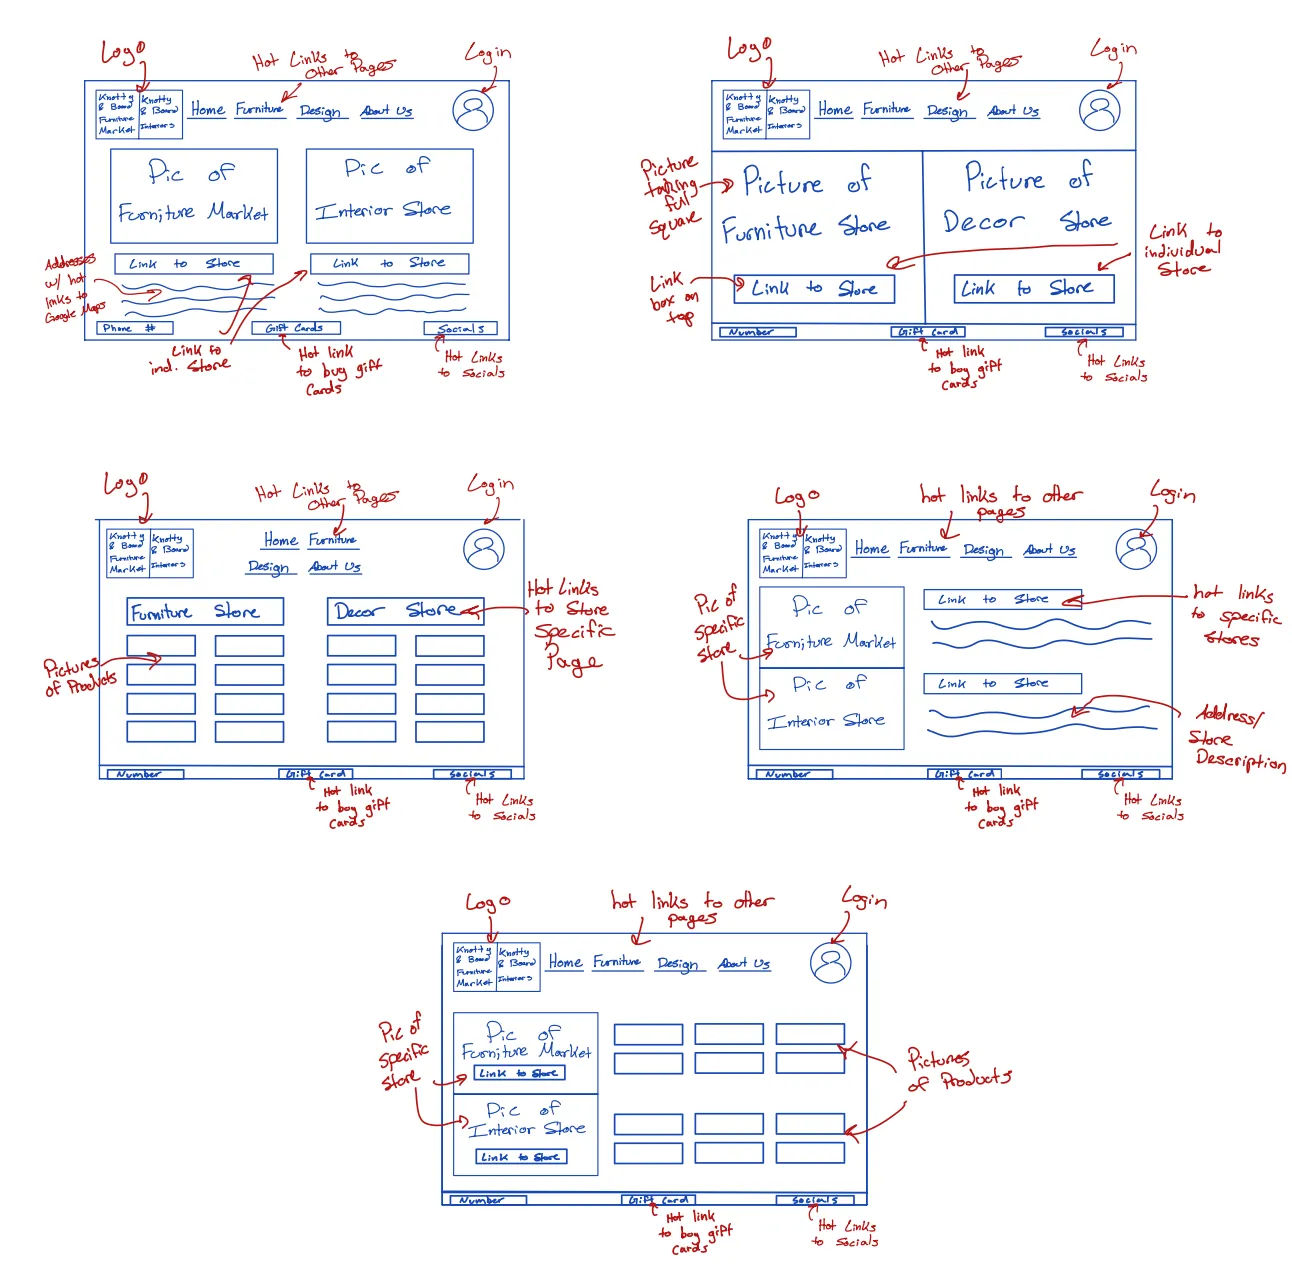 Logo
Hot Links to
Other Pages
Login
Knotty
& Board
Furniture
Market
Knotty
& Board
Interiors
Home Furniture Design About Us
Pic of
Furniture Market
Pic of
Interior Store
Link to Store
Link to Store
Addresses
w/ hot
links to
Google Maps
Phone #
Gift Cards
Socials
Link to
ind. Store
Hot link
to buy gift
Cards
Hot Links
to Socials
Logo
Hot Links to
Other Pages
Login
Knotty
& Board
Furniture
Market
Knotty
& Board
Interiors
Home Furniture Design About Us
Picture
taking
full
square
Picture of
Furniture Store
Picture of
Decor Store
Link to
individual
Store
Link
box on
top
Link to Store
Link to Store
Number
Gift Card
Socials
Hot link
to buy gift
Cards
Hot Links
to Socials
Logo
Hot Links to
Other Pages
Login
Knotty
& Board
Furniture
Market
Knotty
& Board
Interiors
Home Furniture
Design About Us
Furniture Store
Decor Store
Hot Links
to Store
Specific
Page
Pictures
of Products
Number
Gift Card
Socials
Hot link
to buy gift
Cards
Hot Links
to Socials
Logo
hot links to other
pages
Login
Knotty
& Board
Furniture
Market
Knotty
& Board
Interiors
Home Furniture Design About Us
Pic of
specific
store
Pic of
Furniture Market
Pic of
Interior Store
Link to Store
hot links
to specific
stores
Link to Store
Address/
Store
Description
Number
Gift Card
Socials
Hot link
to buy gift
Cards
Hot Links
to Socials
Logo
hot links to other
pages
Login
Knotty
& Board
Furniture
Market
Knotty
& Board
Interiors
Home Furniture Design About Us
Pic of
specific
store
Pic of
Furniture Market
Link to Store
Pic of
Interior Store
Link to Store
Pictures
of Products
Number
Gift Card
Socials
Hot link
to buy gift
Cards
Hot Links
to Socials